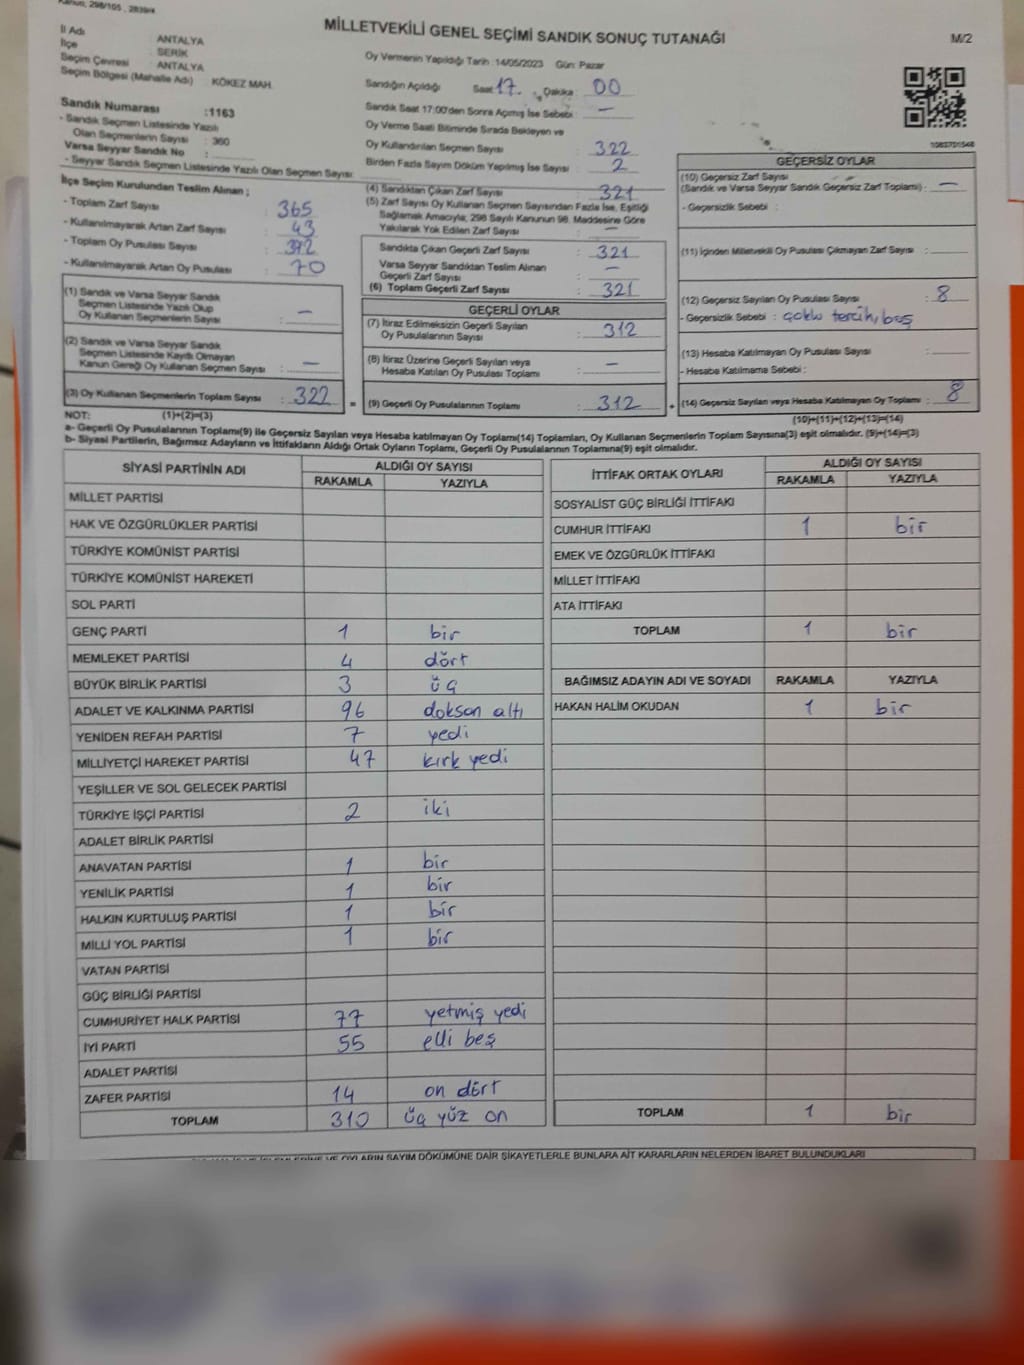 Kanun, 298/105, 2839/4
MİLLETVEKİLİ GENEL SEÇİMİ SANDIK SONUÇ TUTANAĞI
M/2
İl Adı : ANTALYA
İlçe : SERİK
Seçim Çevresi : ANTALYA
Seçim Bölgesi (Mahalle Adı) : KÖKEZ MAH.
Sandık Numarası :1163
- Sandık Seçmen Listesinde Yazılı
Olan Seçmenlerin Sayısı : 360
Varsa Seyyar Sandık No :
- Seyyar Sandık Seçmen Listesinde Yazılı Olan Seçmen Sayısı:
İlçe Seçim Kurulundan Teslim Alınan ;
- Toplam Zarf Sayısı : 365
- Kullanılmayarak Artan Zarf Sayısı : 43
- Toplam Oy Pusulası Sayısı :
- Kullanılmayarak Artan Oy Pusulası : 70
(1) Sandık ve Varsa Seyyar Sandık
Seçmen Listesinde Yazılı Olup
Oy Kullanan Seçmenlerin Sayısı : —
(2) Sandık ve Varsa Seyyar Sandık
Seçmen Listesinde Kayıtlı Olmayan
Kanun Gereği Oy Kullanan Seçmen Sayısı : —
(3) Oy Kullanan Seçmenlerin Toplam Sayısı : 322
Oy Vermenin Yapıldığı Tarih :14/05/2023 Gün: Pazar
Sandığın Açıldığı Saat: 17. Dakika : 00
Sandık Saat 17:00'den Sonra Açmış İse Sebebi : —
Oy Verme Saati Bitiminde Sırada Bekleyen ve
Oy Kullandırılan Seçmen Sayısı : 322
Birden Fazla Sayım Döküm Yapılmış İse Sayısı : 2
(4) Sandıktan Çıkan Zarf Sayısı : 321
(5) Zarf Sayısı Oy Kullanan Seçmen Sayısından Fazla İse, Eşitliği
Sağlamak Amacıyla; 298 Sayılı Kanunun 98. Maddesine Göre
Yakılarak Yok Edilen Zarf Sayısı : —
Sandıkta Çıkan Geçerli Zarf Sayısı : 321
Varsa Seyyar Sandıktan Teslim Alınan
Geçerli Zarf Sayısı : —
(6) Toplam Geçerli Zarf Sayısı : 321
GEÇERLİ OYLAR
(7) İtiraz Edilmeksizin Geçerli Sayılan
Oy Pusulalarının Sayısı : 312
(8) İtiraz Üzerine Geçerli Sayılan veya
Hesaba Katılan Oy Pusulası Toplamı : —
= (9) Geçerli Oy Pusulalarının Toplamı : 312 +
1083701548
GEÇERSİZ OYLAR
(10) Geçersiz Zarf Sayısı
(Sandık ve Varsa Seyyar Sandık Geçersiz Zarf Toplamı) : —
- Geçersizlik Sebebi :
(11) İçinden Milletvekili Oy Pusulası Çıkmayan Zarf Sayısı :
(12) Geçersiz Sayılan Oy Pusulası Sayısı : 8
- Geçersizlik Sebebi : çoklu tercih, boş
(13) Hesaba Katılmayan Oy Pusulası Sayısı :
- Hesaba Katılmama Sebebi :
(14) Geçersiz Sayılan veya Hesaba Katılmayan Oy Toplamı : 8
NOT: (1)+(2)=(3)
(10)+(11)+(12)+(13)=(14)
a- Geçerli Oy Pusulalarının Toplamı(9) ile Geçersiz Sayılan veya Hesaba katılmayan Oy Toplamı(14) Toplamları, Oy Kullanan Seçmenlerin Toplam Sayısına(3) eşit olmalıdır. (9)+(14)=(3)
b- Siyasi Partilerin, Bağımsız Adayların ve İttifakların Aldığı Ortak Oyların Toplamı, Geçerli Oy Pusulalarının Toplamına(9) eşit olmalıdır.
SİYASİ PARTİNİN ADI ALDIĞI OY SAYISI
RAKAMLA YAZIYLA
MİLLET PARTİSİ
HAK VE ÖZGÜRLÜKLER PARTİSİ
TÜRKİYE KOMÜNİST PARTİSİ
TÜRKİYE KOMÜNİST HAREKETİ
SOL PARTİ
GENÇ PARTİ 1 bir
MEMLEKET PARTİSİ 4 dört
BÜYÜK BİRLİK PARTİSİ 3 üç
ADALET VE KALKINMA PARTİSİ 96 doksan altı
YENİDEN REFAH PARTİSİ 7 yedi
MİLLİYETÇİ HAREKET PARTİSİ 47 kırk yedi
YEŞİLLER VE SOL GELECEK PARTİSİ
TÜRKİYE İŞÇİ PARTİSİ 2 iki
ADALET BİRLİK PARTİSİ
ANAVATAN PARTİSİ 1 bir
YENİLİK PARTİSİ 1 bir
HALKIN KURTULUŞ PARTİSİ 1 bir
MİLLİ YOL PARTİSİ 1 bir
VATAN PARTİSİ
GÜÇ BİRLİĞİ PARTİSİ
CUMHURİYET HALK PARTİSİ 77 yetmiş yedi
İYİ PARTİ 55 elli beş
ADALET PARTİSİ
ZAFER PARTİSİ 14 on dört
TOPLAM 310 üç yüz on
İTTİFAK ORTAK OYLARI ALDIĞI OY SAYISI
RAKAMLA YAZIYLA
SOSYALİST GÜÇ BİRLİĞİ İTTİFAKI
CUMHUR İTTİFAKI 1 bir
EMEK VE ÖZGÜRLÜK İTTİFAKI
MİLLET İTTİFAKI
ATA İTTİFAKI
TOPLAM 1 bir
BAĞIMSIZ ADAYIN ADI VE SOYADI RAKAMLA YAZIYLA
HAKAN HALİM OKUDAN 1 bir
TOPLAM 1 bir
VE OYLARIN SAYIM DÖKÜMÜNE DAİR ŞİKAYETLERLE BUNLARA AİT KARARLARIN NELERDEN İBARET BULUNDUKLARI